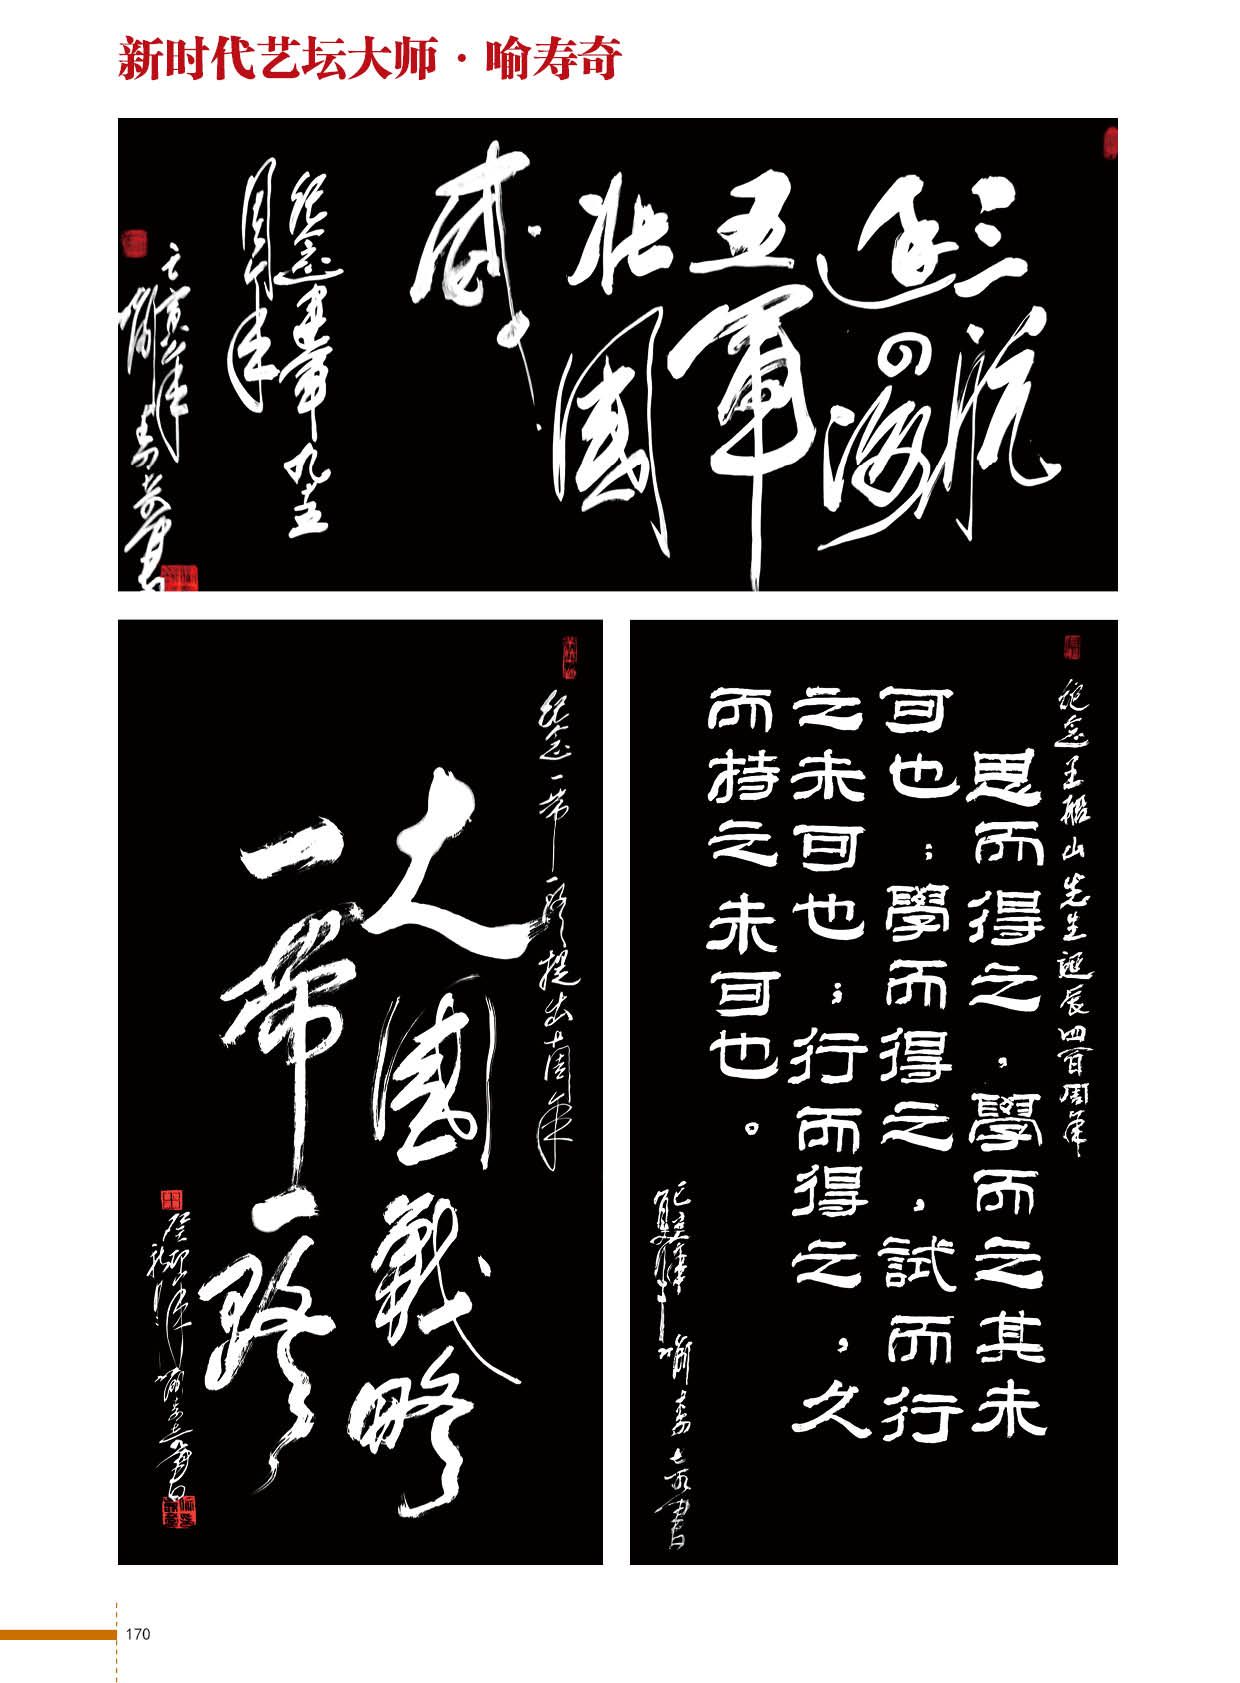 新时代艺坛大师·喻寿奇
三航
四海
五軍
壯國
威
纪念建軍九十五
周年
壬寅年
喻寿奇書
纪念一带一路提出十周年
大國戰略
一带一路
癸卯年
喻寿奇書
纪念王船山先生誕辰四百周年
思而得之，學而之其未
可也；學而得之，試而行
之未可也；行而得之，久
而持之未可也。
己亥年
喻寿奇書
170